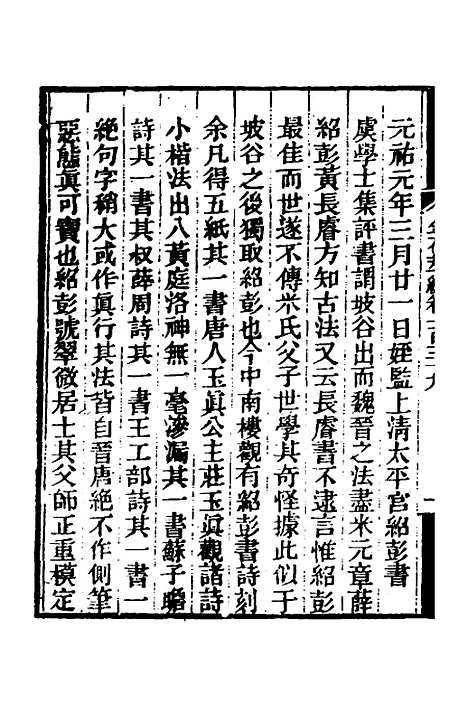 元祐元年三月廿一日姪監上清太平宮紹彭書
虞學士集評書謂坡谷出而魏晉之法盡米元章薛
紹彭黃長睿方知古法又云長睿書不逮言惟紹彭
最佳而世遂不傳米氏父子世學其奇怪據此似于
坡谷之後獨取紹彭也今中南樓觀有紹彭書詩刻
余凡得五紙其一書唐人玉眞公主莊玉眞觀諸詩
小楷法出八黃庭洛神無一毫滲漏其一書蘇子瞻
詩其一書其叔薛周詩其一書王工部詩其一書一
絶句字稍大或作眞行其法皆自晉唐絶不作側筆
惡態眞可寶也紹彭號翠微居士其父師正重模定